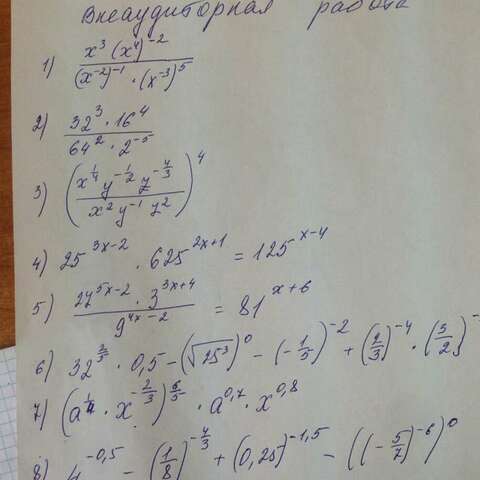 Внеаудиторная работа
1) x^3 (x^4)^-2 / (x^-2)^-1 · (x^-3)^5
2) 32^3 · 16^4 / 64^2 · 2^-5
3) (x^1/4 y^-1/2 z^-4/3 / x^2 y^-1 z^2)^4
4) 25^3x-2 · 625^2x+1 = 125^x-4
5) 27^5x-2 · 3^3x+4 / 9^4x-2 = 81^x+6
6) · 0,5 - (√25^3)^0 - (-1/5)^-2 + (2/3)^-4 ·
7) · x^-2/3)^6/5 · a^0,7 · x^0,8
8) 4^-0,5 - (1/8)^-4/3 + (0,25)^-1,5 - ((-5/7)^-6)^0